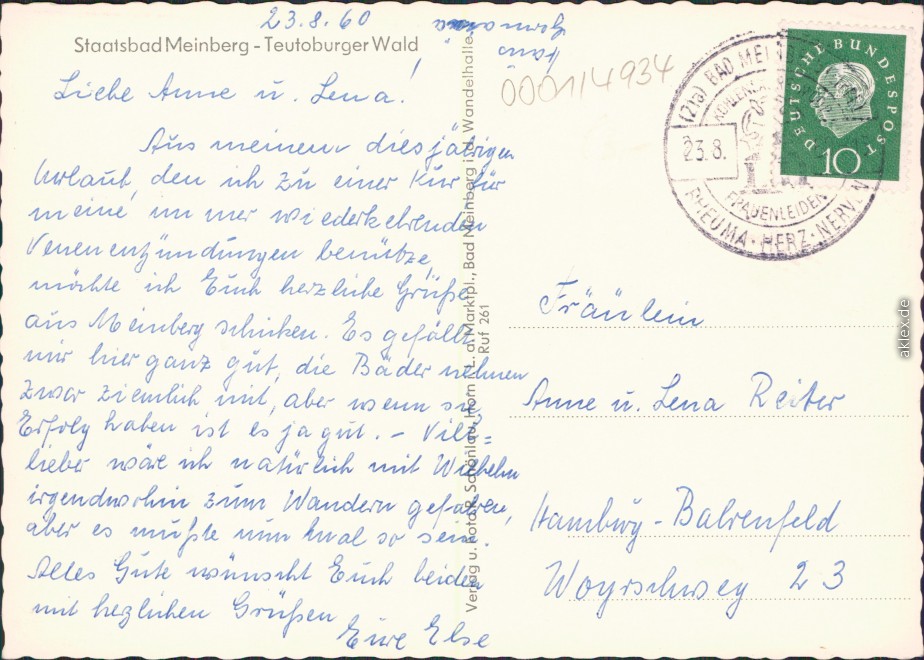 23.8.60
Staatsbad Meinberg - Teutoburger Wald
Liebe Anne u. Lena!
Aus meinem diesjährigen
Urlaub, den ich zu einer Kur für
meine immer wiederkehrenden
Venenentzündungen benütze,
möchte ich Euch herzliche Grüße
aus Meinberg schicken. Es gefällt
mir hier ganz gut, die Bäder nehmen
zwar ziemlich mit, aber wenn sie
Erfolg haben ist es ja gut. - Viel=
lieber wäre ich natürlich mit Wilhelm
irgendwohin zum Wandern gefahren,
aber es mußte nun mal so sein.
Alles Gute wünscht Euch beiden
mit herzlichen Grüßen
Eure Else
Verlag u. Foto R. Schönlau, Horn i. L. a. Marktpl., Bad Meinberg i. d. Wandelhalle
Ruf 261
0001/4934
(21a) BAD MEINB
23.8.
FRAUENLEIDEN
RHEUMA · HERZ · NERVEN
DEUTSCHE BUNDESPOST
10
Fräulein
Anne u. Lena Reiter
Hamburg-Bahrenfeld
Woyrschweg 23
aklex.de